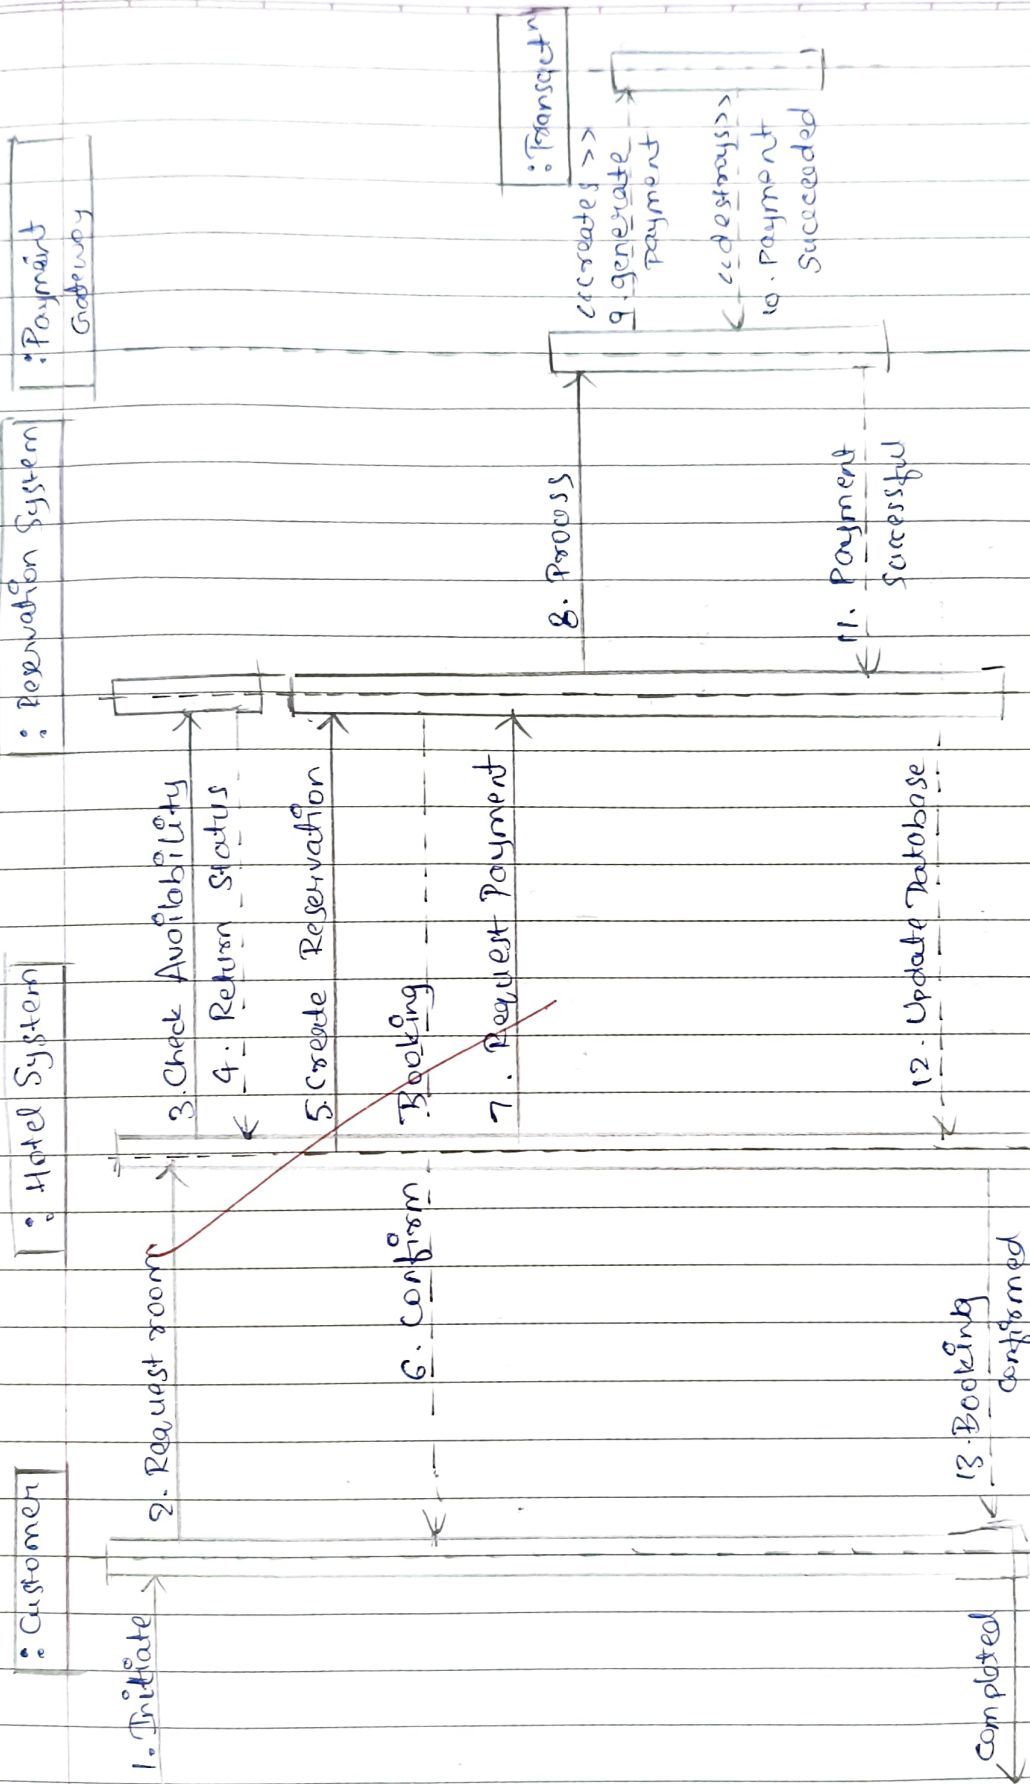 : Customer
: Hotel System
: Reservation System
: Payment
Gateway
: Transactn
1. Initiate
2. Request room
3. Check Availability
4. Return Status
5. Create Reservation
6. Confirm Booking
7. Request Payment
8. Process
<<creates>>
9. generate
payment
<<destroys>>
10. payment
Succeeded
11. Payment
Successful
12. Update Database
13. Booking
confirmed
Completed